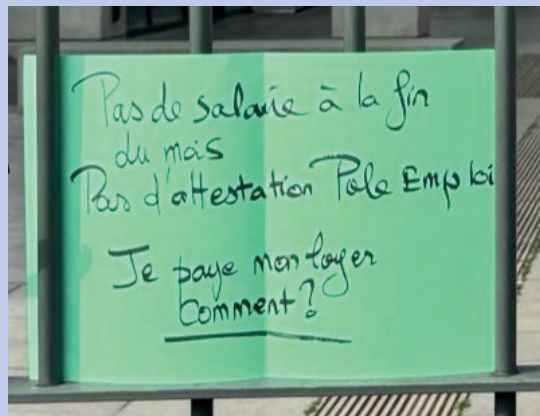 Pas de salaire à la fin
du mois
Pas d'attestation Pole Emploi
Je paye mon loyer
comment ?